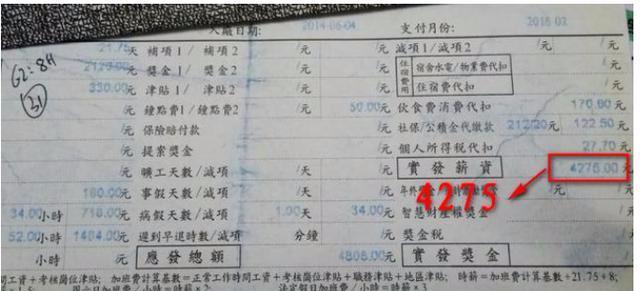 入廠日期: 2014-06-04 支付月份: 2016 02
21.75天 補項1/ 補項2 /元 減項1/減項2 /元 /元
2120.00元 獎金1/ 獎金2 /元 住宿費用 宿舍水電/物業費代扣 /元
G2:8H
330.00元 津貼1/ 津貼2 /元 住宿費代扣 /元
31
/元 鐘點費1/鐘點費2 50.00元 伙食費消費代扣 170.80元
/元 保險賠付款 /元 社保/公積金代繳款 212.20元 122.50元
/元 提案獎金 /元 個人所得稅代扣 27.70元
/元 曠工天數/減項 /天 /元 實發薪資 4275.00元
160.00元 事假天數/減項 /天 /元 /元
4275
34.00小時 718.00元 病假天數/減項 1.00天 34.00元 智慧財產權獎金 /元
52.00小時 1484.00元 遲到早退時數/減項 分鐘 /元 獎金稅 /元
小時 /元 應發總額 4808.00元 實發獎金 /元
工資+考核崗位津貼; 加班費計算基數=正常工作時間工資+考核崗位津貼+職務津貼+地區津貼; 時薪=加班費計算基數÷21.75÷8;